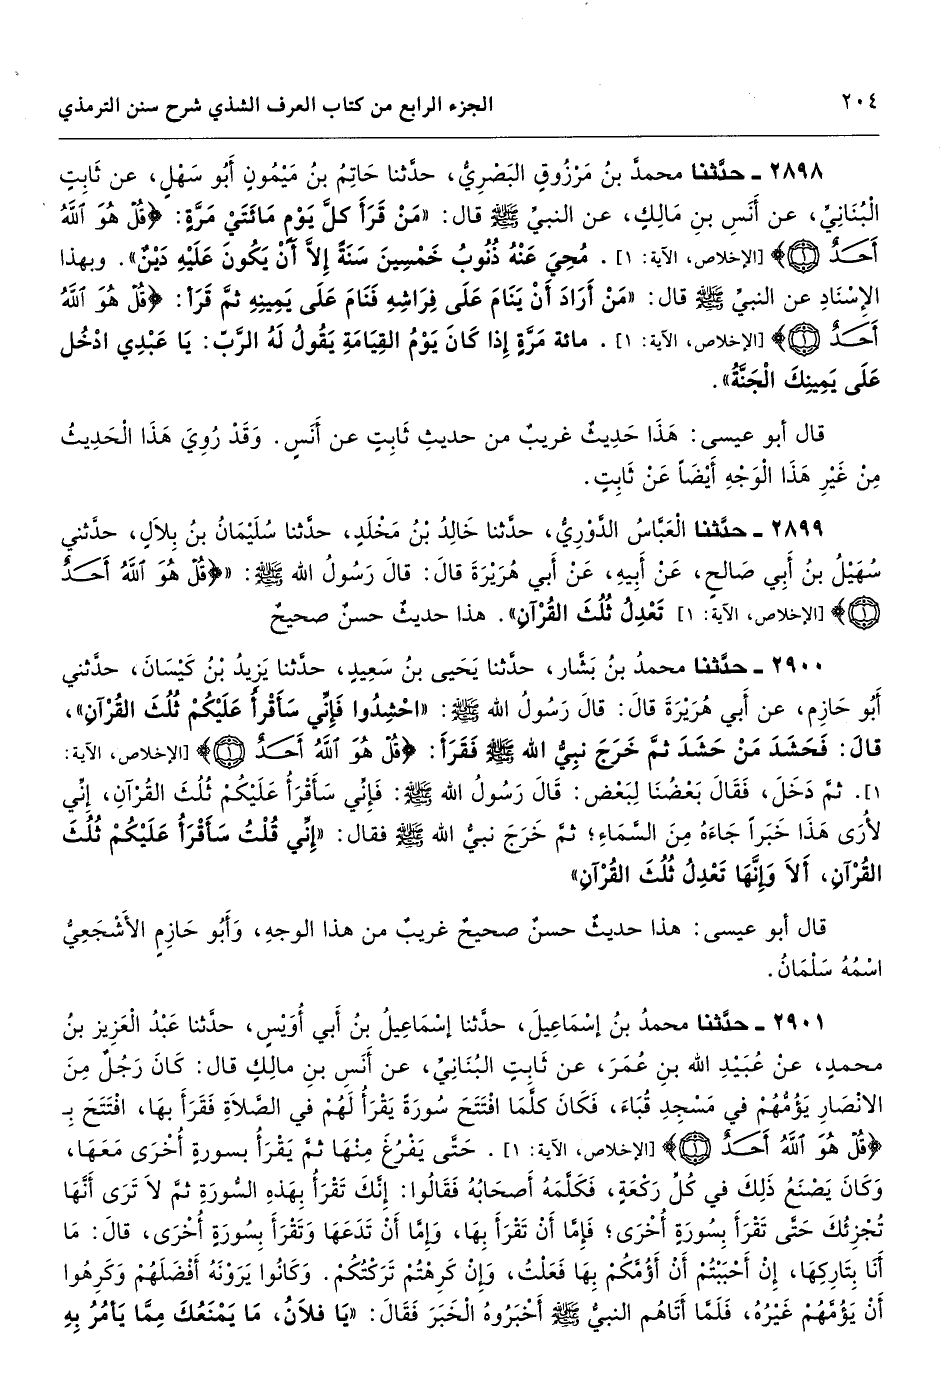 ٢٠٤ الجزء الرابع من كتاب العرف الشذي شرح سنن الترمذي
٢٨٩٨ ـ حدَّثنا محمدُ بنُ مَرْزُوقِ البَصْرِيُّ، حدَّثنا حَاتِمُ بنُ مَيْمُونٍ أَبُو سَهْلٍ، عن ثَابِتٍ
الْبُنَانِيِّ، عن أَنَسِ بنِ مَالِكٍ، عن النبيِّ ﷺ قال: «مَنْ قَرَأَ كلَّ يَوْمٍ مَائَتَيْ مَرَّةٍ: ﴿قُلْ هُوَ ٱللَّهُ
أَحَدٌ ۝١﴾ [الإخلاص، الآية: ١] . مُحِيَ عَنْهُ ذُنُوبُ خَمْسِينَ سَنَةً إلاَّ أَنْ يَكُونَ عَلَيْهِ دَيْنٌ». وبهذا
الإسْنَادِ عن النبيِّ ﷺ قال: «مَنْ أَرَادَ أَنْ يَنَامَ عَلَى فِرَاشِهِ فَنَامَ عَلَى يَمِينِهِ ثمَّ قَرَأَ: ﴿قُلْ هُوَ ٱللَّهُ
أَحَدٌ ۝١﴾ [الإخلاص، الآية: ١] . مائة مَرَّةٍ إذا كَانَ يَوْمُ القِيَامَةِ يَقُولُ لَهُ الرَّبّ: يَا عَبْدِي ادْخُل
عَلَى يَمِينِكَ الْجَنَّةُ».
قال أبو عيسى: هَذَا حَدِيثٌ غريبٌ من حديثِ ثَابِتٍ عن أَنَسٍ. وَقَدْ رُوِيَ هَذَا الْحَدِيثُ
مِنْ غَيْرِ هَذَا الْوَجْهِ أَيْضَاً عَنْ ثَابِتٍ.
٢٨٩٩ ـ حدَّثنا الْعَبَّاسُ الدَّوْرِيُّ، حدَّثنا خَالِدُ بْنُ مَخْلَدٍ، حدَّثنا سُلَيْمَانُ بنُ بِلاَلٍ، حدَّثني
سُهَيْلُ بنُ أَبِي صَالحٍ، عَنْ أَبِيهِ، عَنْ أبي هُرَيْرَةَ قالَ: قالَ رَسُولُ الله ﷺ: «﴿قُلْ هُوَ ٱللَّهُ أَحَدٌ
۝١﴾ [الإخلاص، الآية: ١] تَعْدِلُ ثُلُثَ القُرْآنِ». هذا حديثٌ حسنٌ صحيحٌ
٢٩٠٠ ـ حدَّثنا محمدُ بنُ بَشَّار، حدَّثنا يَحَيى بنُ سَعِيدٍ، حدَّثنا يَزِيدُ بْنُ كَيْسَانَ، حدَّثني
أَبُو حَازِم، عن أبي هُرَيْرَةَ قالَ: قالَ رَسُولُ الله ﷺ: «احْشِدُوا فَإِنِّي سَأَقْرأُ عَلَيْكُمْ ثُلُثَ القُرْآنِ»،
قالَ: فَحَشَدَ مَنْ حَشَدَ ثمَّ خَرَجَ نبيُّ الله ﷺ فَقَرَأَ: ﴿قُلْ هُوَ ٱللَّهُ أَحَدٌ ۝١﴾ [الإخلاص، الآية:
١]. ثمَّ دَخَلَ، فَقَالَ بَعْضُنَا لِبَعْضِ: قالَ رَسُولُ الله ﷺ: فَإِنِّي سَأَقْرَأُ عَلَيْكُمْ ثُلُثَ القُرْآنِ، إنِّي
لأُرَى هَذَا خَبَراً جَاءَهُ مِنَ السَّمَاءِ؛ ثمَّ خَرَجَ نبيُّ الله ﷺ فقال: «إنِّي قُلْتُ سَأَقْرَأُ عَلَيْكُمْ ثُلُثَ
القُرْآنِ، أَلاَ وَإِنَّهَا تَعْدِلُ ثُلُثَ القُرْآنِ»
قال أبو عيسى: هذا حديثٌ حسنٌ صحيحٌ غريبٌ من هذا الوجهِ، وَأَبُو حَازِمٍ الأَشْجَعِيُّ
اسْمُهُ سَلْمَانُ.
٢٩٠١ ـ حدَّثنا محمدُ بنُ إسْمَاعِيلَ، حدَّثنا إسْمَاعِيلُ بنُ أبي أُوَيْسٍ، حدَّثنا عَبْدُ الْعَزِيزِ بنُ
محمدٍ، عنْ عُبَيْدِ الله بنِ عُمَرَ، عن ثَابِتٍ البُنَانِيِّ، عن أَنَسِ بنِ مالِكٍ قال: كَانَ رَجُلٌ مِنَ
الانْصَارِ يَؤُمُّهُمْ في مَسْجِدِ قُبَاءَ، فَكَانَ كلَّمَا افْتَتَحَ سُورَةً يَقْرَأُ لَهُمْ في الصَّلاَةِ فَقَرَأَ بهَا، افْتَتَحَ بِـ
﴿قُلْ هُوَ ٱللَّهُ أَحَدٌ ۝١﴾ [الإخلاص، الآية: ١] . حَتَّى يَفْرُغَ مِنْهَا ثمَّ يَقْرَأُ بسورةٍ أُخْرَى مَعَهَا،
وَكَانَ يَصْنَعُ ذَلِكَ في كُلِّ رَكْعَةٍ، فَكَلَّمَهُ أَصحَابُهُ فَقَالُوا: إِنَّكَ تَقْرَأُ بِهَذِهِ السُّورَةِ ثمَّ لاَ تَرَى أَنَّهَا
تُجْزِئُكَ حَتَّى تَقْرَأَ بِسُورَةٍ أُخْرَى؛ فَإِمَّا أَنْ تَقْرَأَ بِهَا، وَإِمَّا أَنْ تَدَعَهَا وَتَقْرَأَ بِسُورَةٍ أُخْرَى، قالَ: مَا
أَنَا بِتَارِكِهَا، إنِْ أَحْبَبْتُمْ أَنْ أَؤُمَّكُمْ بِهَا فَعَلْتُ، وَإنْ كَرِهْتُمْ تَرَكْتُكُمْ. وَكَانُوا يَرَوْنَهُ أَفْضَلَهُمْ وَكَرِهُوا
أَنْ يَؤُمَّهُمْ غَيْرُهُ، فَلَمَّا أَتَاهُم النبيُّ ﷺ أَخْبَرُوهُ الْخَبَرَ فَقَالَ: «يَا فلاَنُ، مَا يَمْنَعُكَ مِمَّا يَأْمُرُ بِهِ